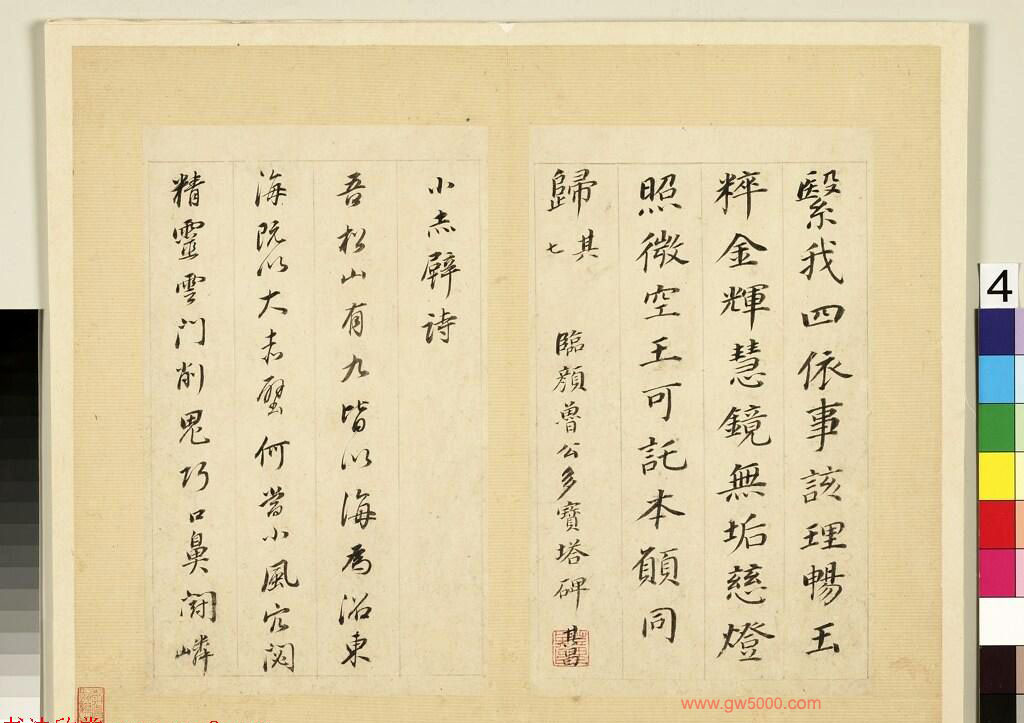 繄我四依事該理暢玉
粹金輝慧鏡無垢慈燈
照微空王可託本願同
歸其七 臨顏魯公多寶塔碑 其昌
小赤壁詩
吾松山有九皆以海為沼東
海既以大赤壁何當小風穴閟
精靈雲門削鬼巧口鼻鬪嶙
4
www.gw5000.com